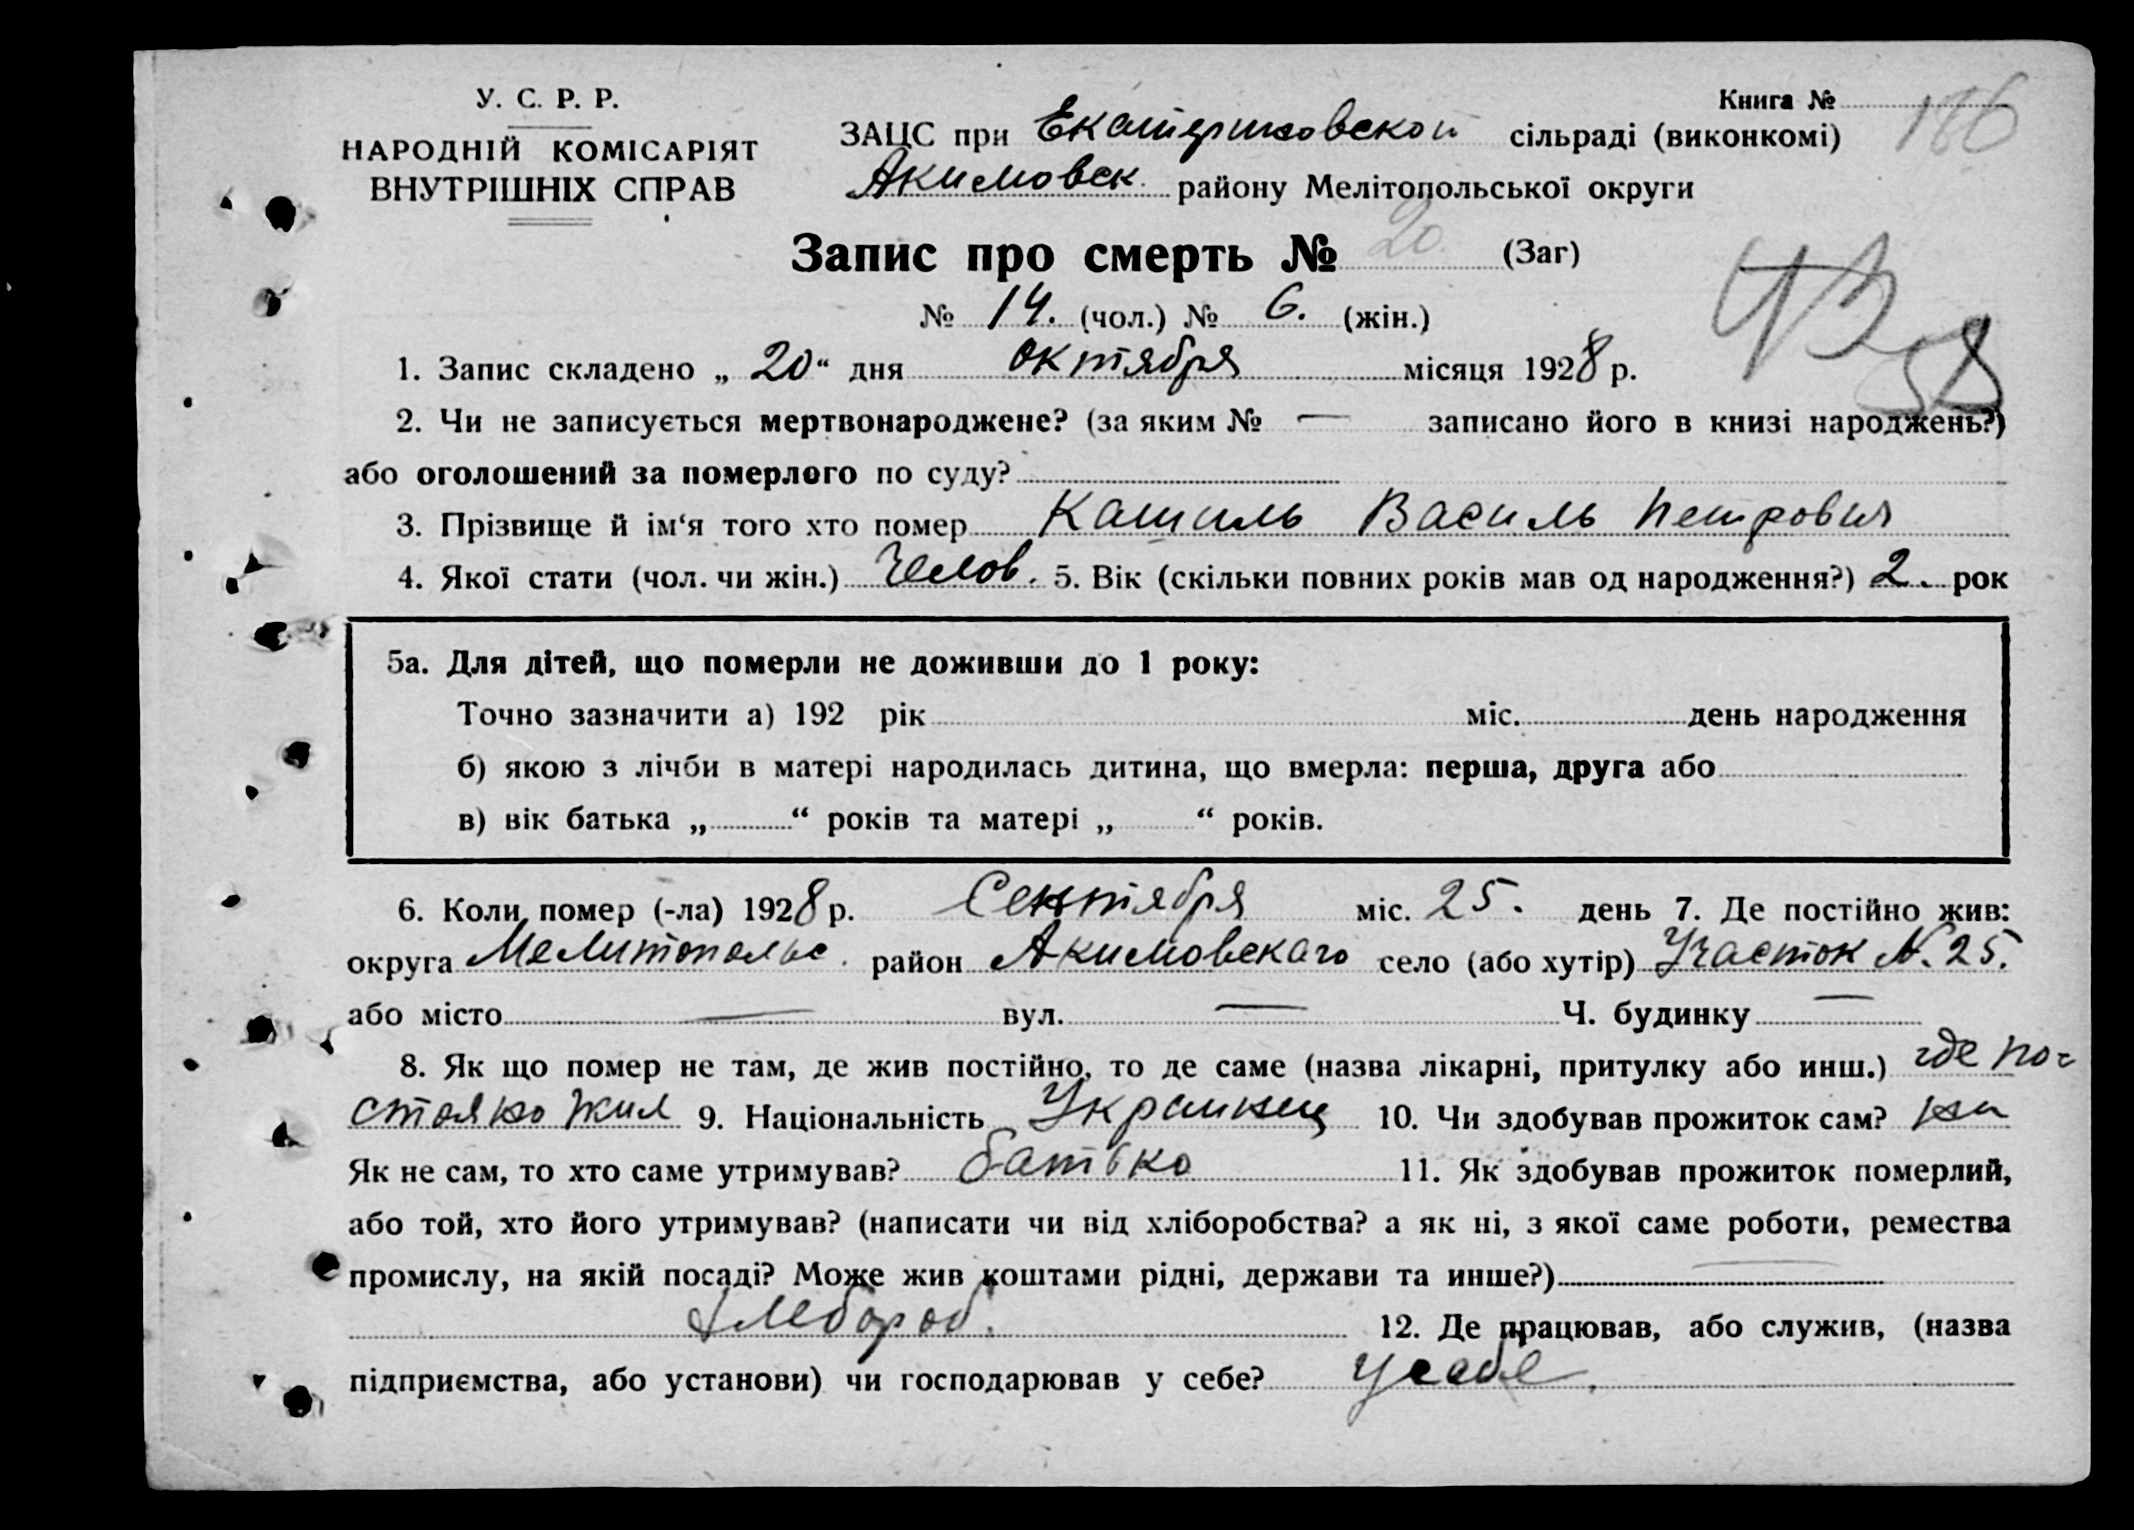 У. С. Р. Р.
НАРОДНІЙ КОМІСАРІЯТ
ВНУТРІШНІХ СПРАВ
Книга № 186
ЗАЦС при Екатериновской сільраді (виконкомі)
Акимовск. району Мелітопольської округи
Запис про смерть № 20 (Заг)
№ 14. (чол.) № 6. (жін.)
1. Запис складено „ 20 “ дня октября місяця 1928 р.
2. Чи не записується мертвонароджене? (за яким № — записано його в книзі народжень?)
або оголошений за померлого по суду?
3. Прізвище й ім‘я того хто помер Кашиль Василь Петрович
4. Якої стати (чол. чи жін.) Челов. 5. Вік (скільки повних років мав од народження?) 2. рок
5а. Для дітей, що померли не доживши до 1 року:
Точно зазначити а) 192 рік міс. день народження
б) якою з лічби в матері народилась дитина, що вмерла: перша, друга або
в) вік батька „ “ років та матері „ “ років.
6. Коли помер (-ла) 1928 р. Сентября міс. 25. день 7. Де постійно жив:
округа Мелитопольс. район Акимовскаго село (або хутір) Участок N. 25.
або місто — вул. — Ч. будинку —
8. Як що помер не там, де жив постійно, то де саме (назва лікарні, притулку або инш.) где по=
стояно жил 9. Національність Украинец 10. Чи здобував прожиток сам? ни
Як не сам, то хто саме утримував? батько 11. Як здобував прожиток померлий,
або той, хто його утримував? (написати чи від хліборобства? а як ні, з якої саме роботи, ремества
промислу, на якій посаді? Може жив коштами рідні, держави та инше?) —
хлебороб. 12. Де працював, або служив, (назва
підприємства, або установи) чи господарював у себе? у себе.